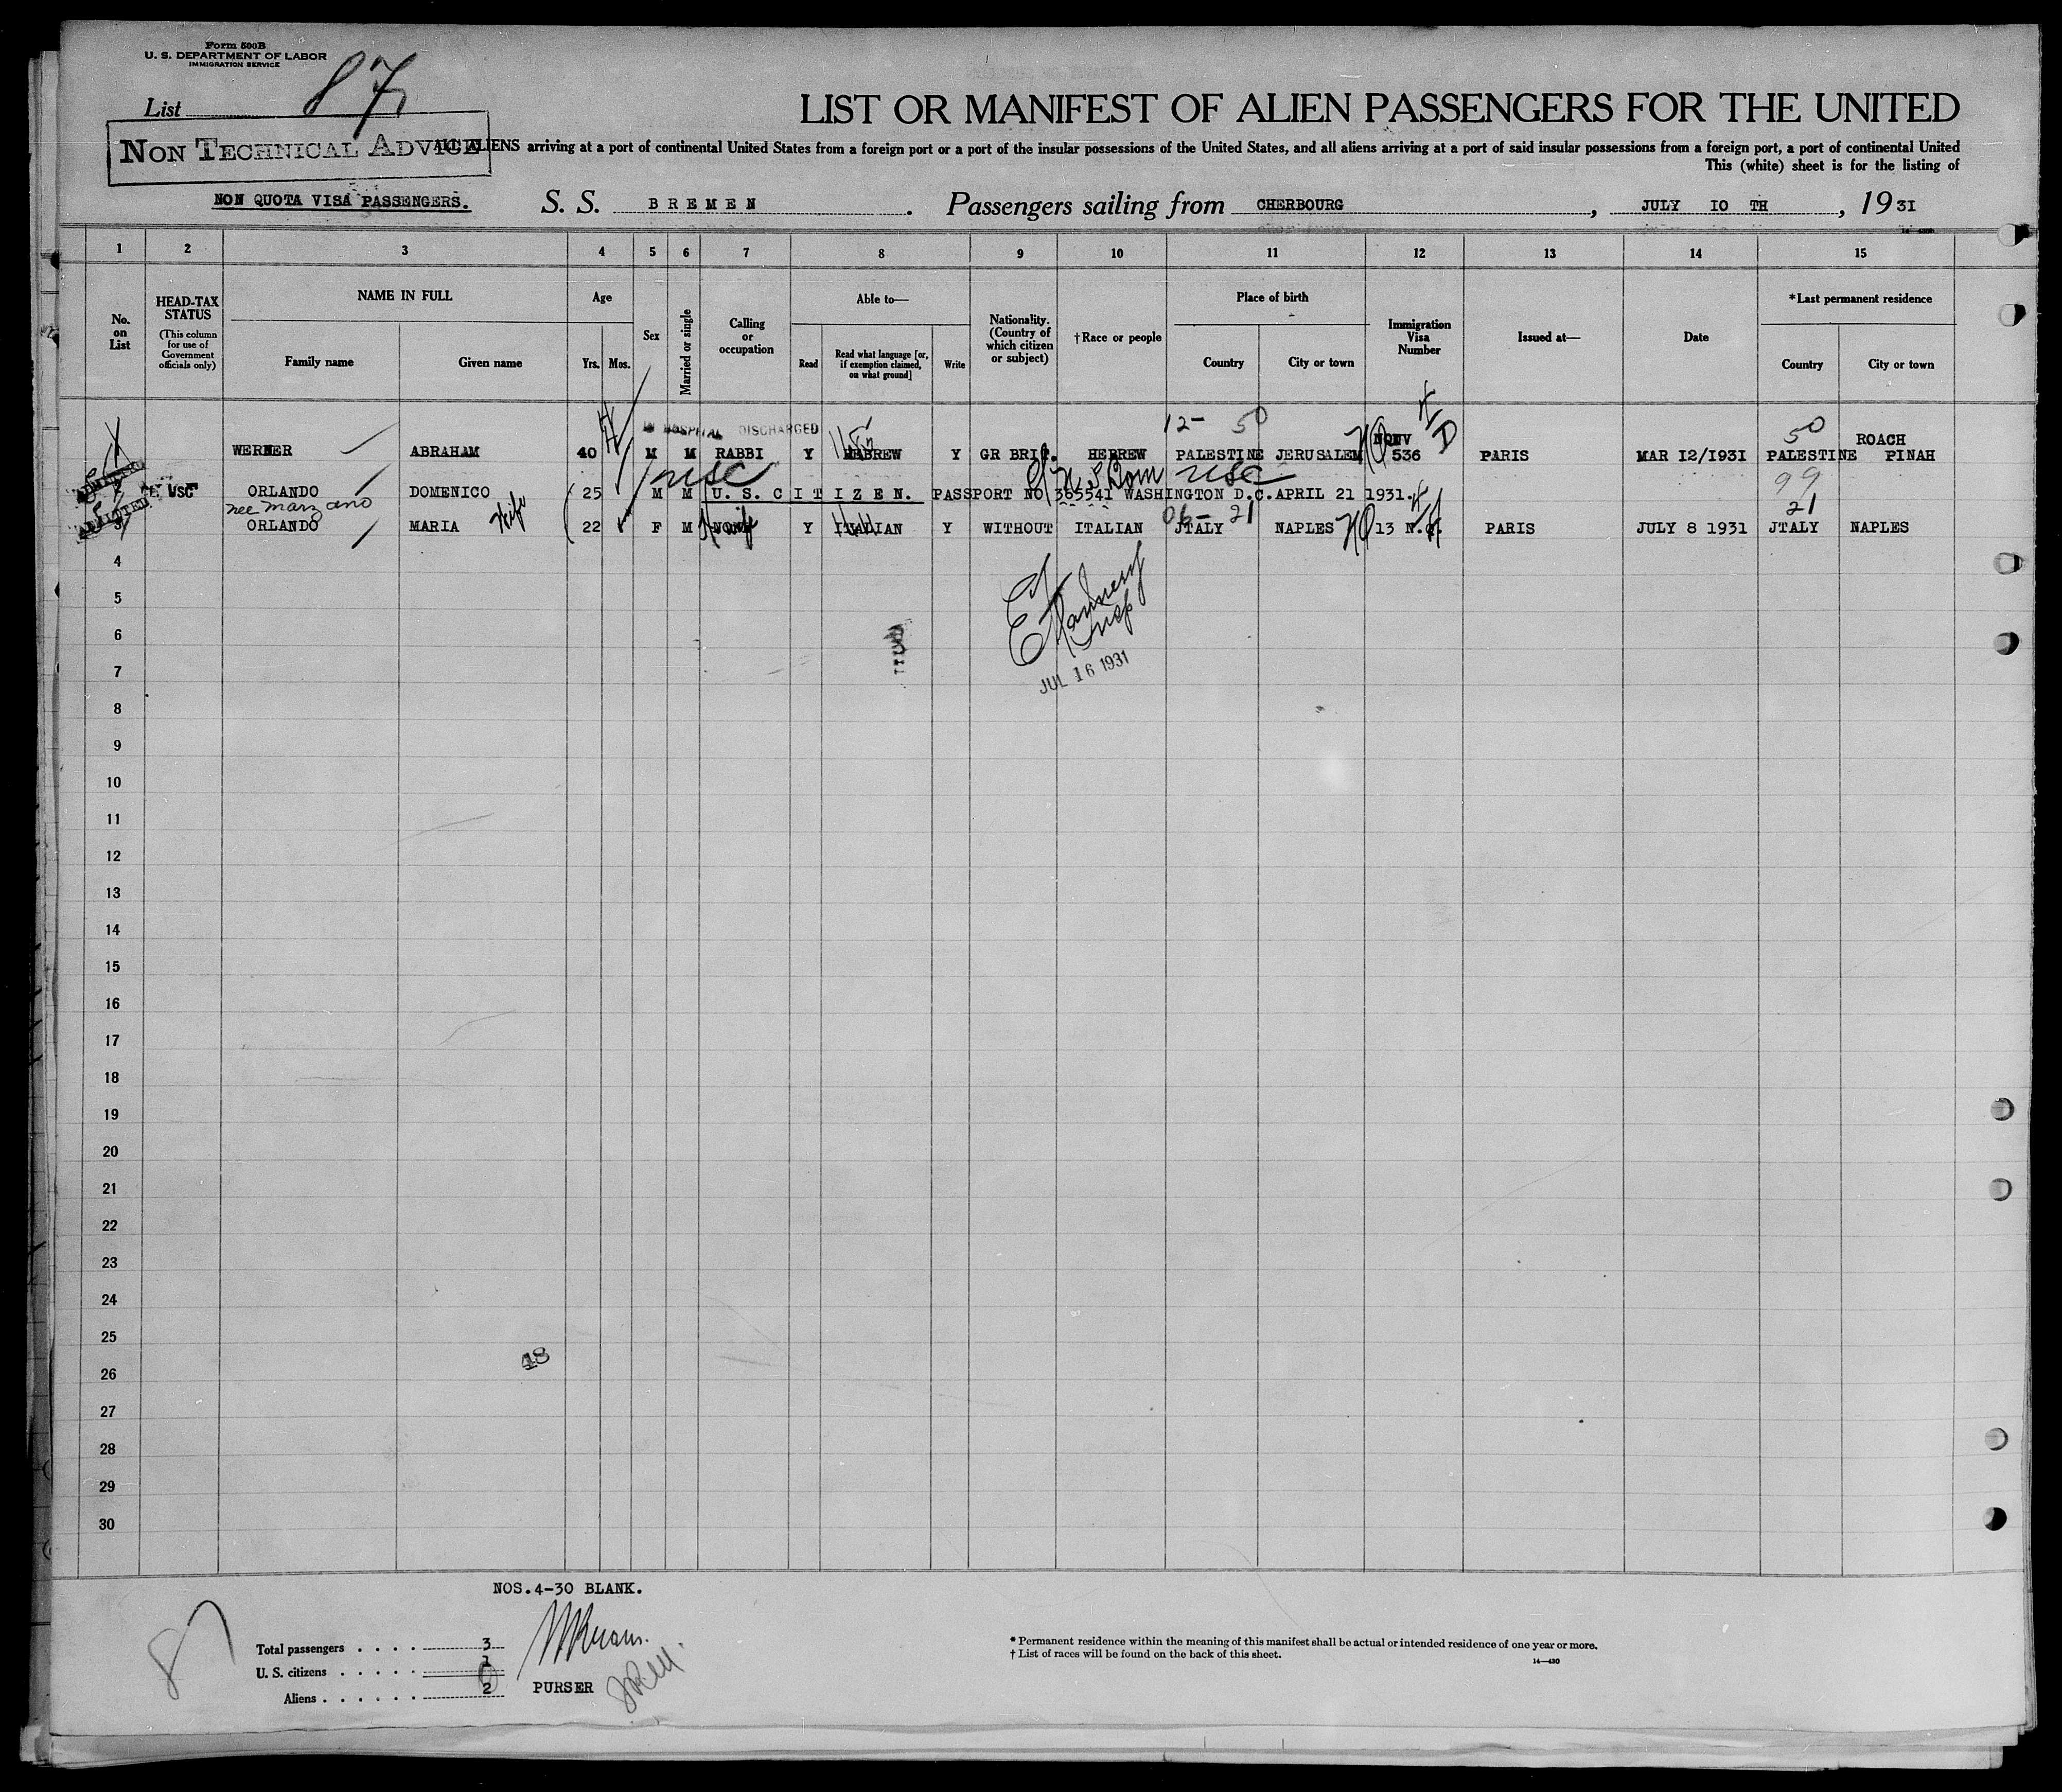 Form 500B
U. S. DEPARTMENT OF LABOR
IMMIGRATION SERVICE
List 87
NON TECHNICAL ADVICE
LIST OR MANIFEST OF ALIEN PASSENGERS FOR THE UNITED
ALL ALIENS arriving at a port of continental United States from a foreign port or a port of the insular possessions of the United States, and all aliens arriving at a port of said insular possessions from a foreign port, a port of continental United
This (white) sheet is for the listing of
NON QUOTA VISA PASSENGERS. S. S. BREMEN. Passengers sailing from CHERBOURG, JULY 10 TH, 1931
1 2 3 4 5 6 7 8 9 10 11 12 13 14 15
No. on List
HEAD-TAX STATUS (This column for use of Government officials only)
NAME IN FULL
Family name Given name
Age
Yrs. Mos.
Sex
Married or single
Calling or occupation
Able to—
Read Read what language [or, if exemption claimed, on what ground] Write
Nationality. (Country of which citizen or subject)
†Race or people
Place of birth
Country City or town
Immigration Visa Number
Issued at—
Date
*Last permanent residence
Country City or town
IN HOSPITAL DISCHARGED 12- 50 50
1 WERNER ABRAHAM 40 M M RABBI Y HEBREW Y GR BRIT. HEBREW PALESTINE JERUSALEM NQIV 536 PARIS MAR 12/1931 PALESTINE ROACH PINAH
usc U.S. Born usc 99
ADMITTED
2 USC ORLANDO DOMENICO 25 M M U. S. CITIZEN. PASSPORT NO 385541 WASHINGTON D.C. APRIL 21 1931.
nee Marzano wife 06- 21 21
ADMITTED
3 ORLANDO MARIA 22 F M Y ITALIAN Y WITHOUT ITALIAN JTALY NAPLES 13 N.Q. PARIS JULY 8 1931 JTALY NAPLES
4
5
6
7
JUL 16 1931
8
9
10
11
12
13
14
15
16
17
18
19
20
21
22
23
24
25
48
26
27
28
29
30
NOS.4-30 BLANK.
87
Total passengers . . . . 3
U. S. citizens . . . . . 1
Aliens . . . . . . 2
PURSER
* Permanent residence within the meaning of this manifest shall be actual or intended residence of one year or more.
† List of races will be found on the back of this sheet.
14—430